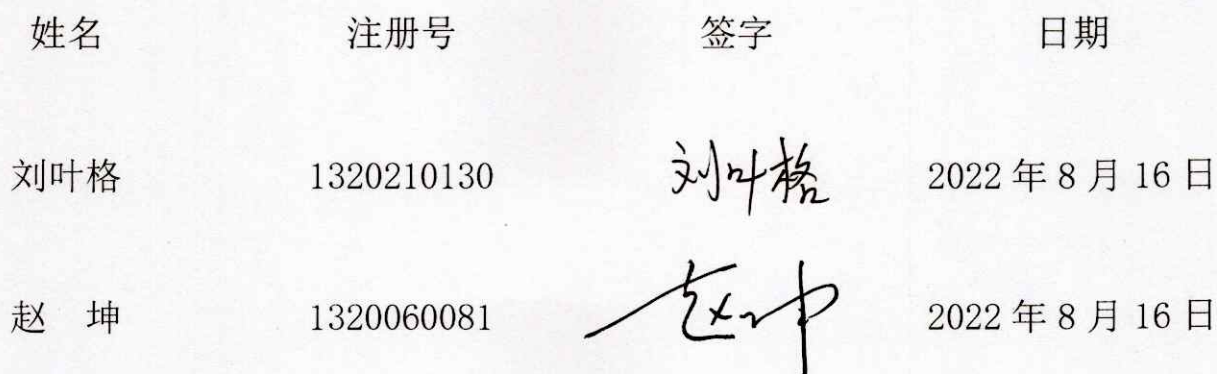 姓名 注册号 签字 日期
刘叶格 1320210130 刘叶格 2022年8月16日
赵 坤 1320060081 赵坤 2022年8月16日